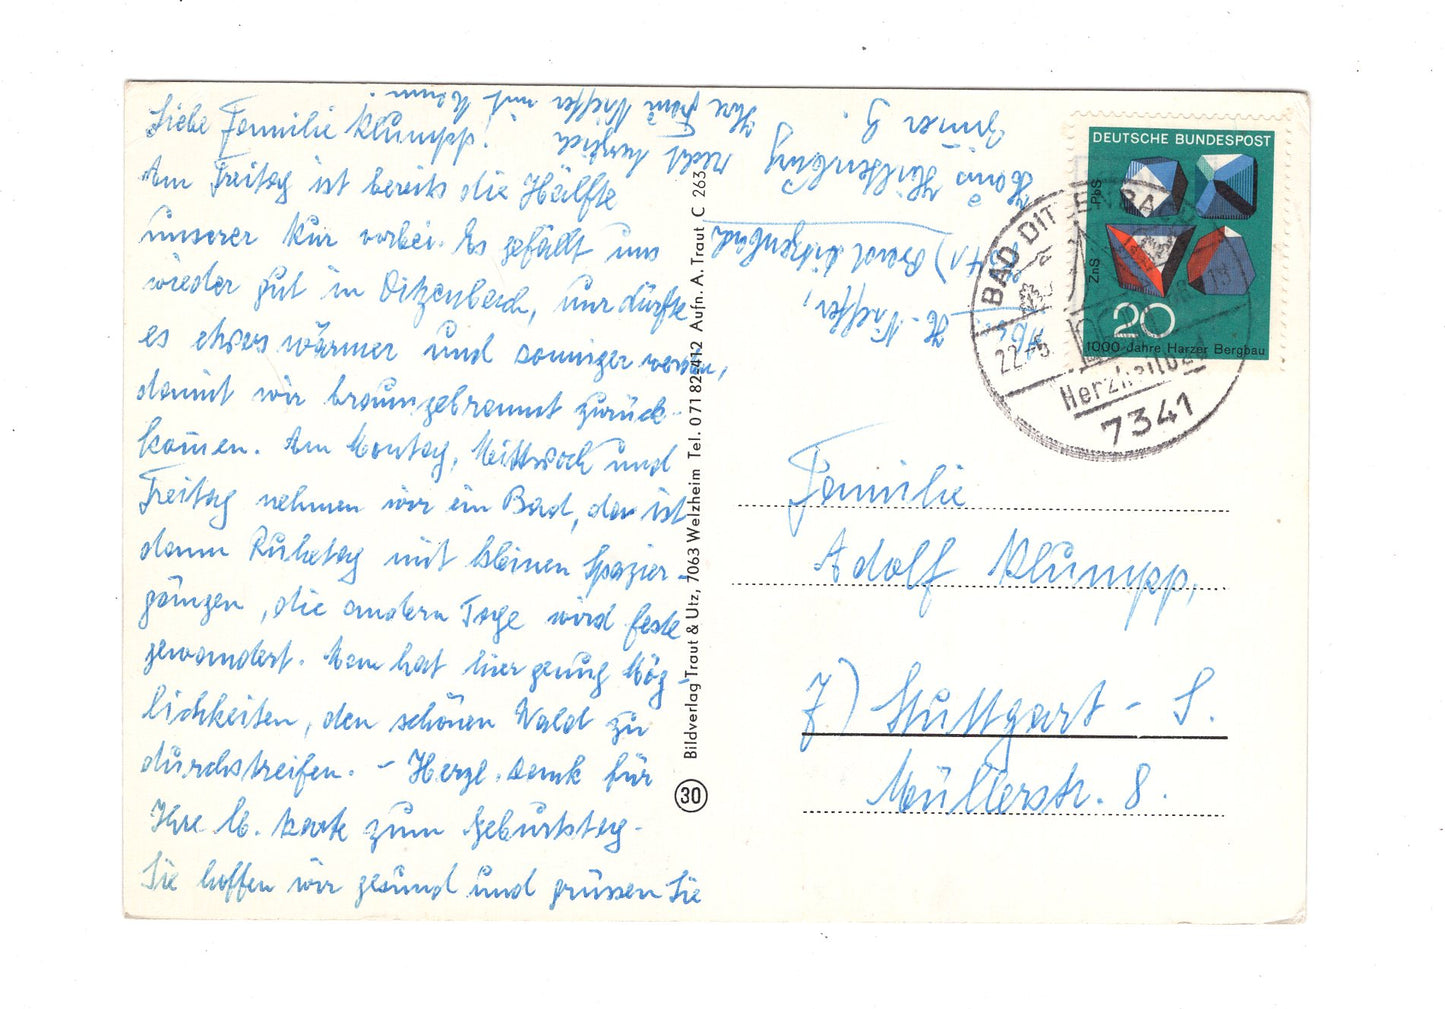 Liebe Familie Klumpp!
Am Freitag ist bereits die Hälfte
unserer Kur vorbei. Es gefällt uns
wieder gut in Ditzenbach, nur dürfte
es etwas wärmer und sonniger werden,
damit wir braungebrannt zurück-
kom̄en. Am Montag, Mittwoch und
Freitag nehmen wir ein Bad, da ist
dann Ruhetag mit kleinen Spazier-
gängen, die andern Tage wird feste
gewandert. Man hat hier genug Mög-
lichkeiten, den schönen Wald zu
durchstreifen. - Herzl. Dank für
Ihre lb. Karte zum Geburtstag.
Sie hoffen wir gesund und grüssen Sie
recht herzlich
Ihre Fam. Nägele mit Mann!
Haus Hiltenburg
Zimmer 9.
Bad Ditzenbach
Bildverlag Traut & Utz, 7063 Welzheim Tel. 07182-412 Aufn. A. Traut C 263
30
DEUTSCHE BUNDESPOST
PbS
ZnS
20
1000 Jahre Harzer Bergbau
BAD DITZENBACH
22.-5.
Herzheilbad
7341
Familie
Adolf Klumpp,
7) Stuttgart - S.
Müllerstr. 8.